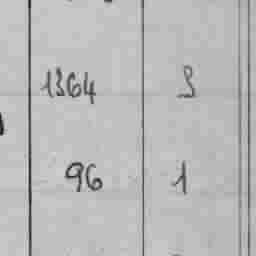 1364 3
96 1